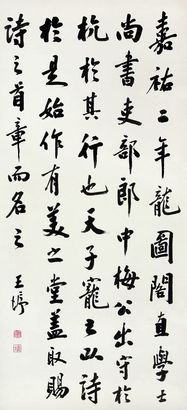 嘉祐二年龍圖閣直學士
尚書吏部郎中梅公出守於
杭於其行也天子寵之以詩
於是始作有美之堂蓋取賜
詩之首章而名之 王垿